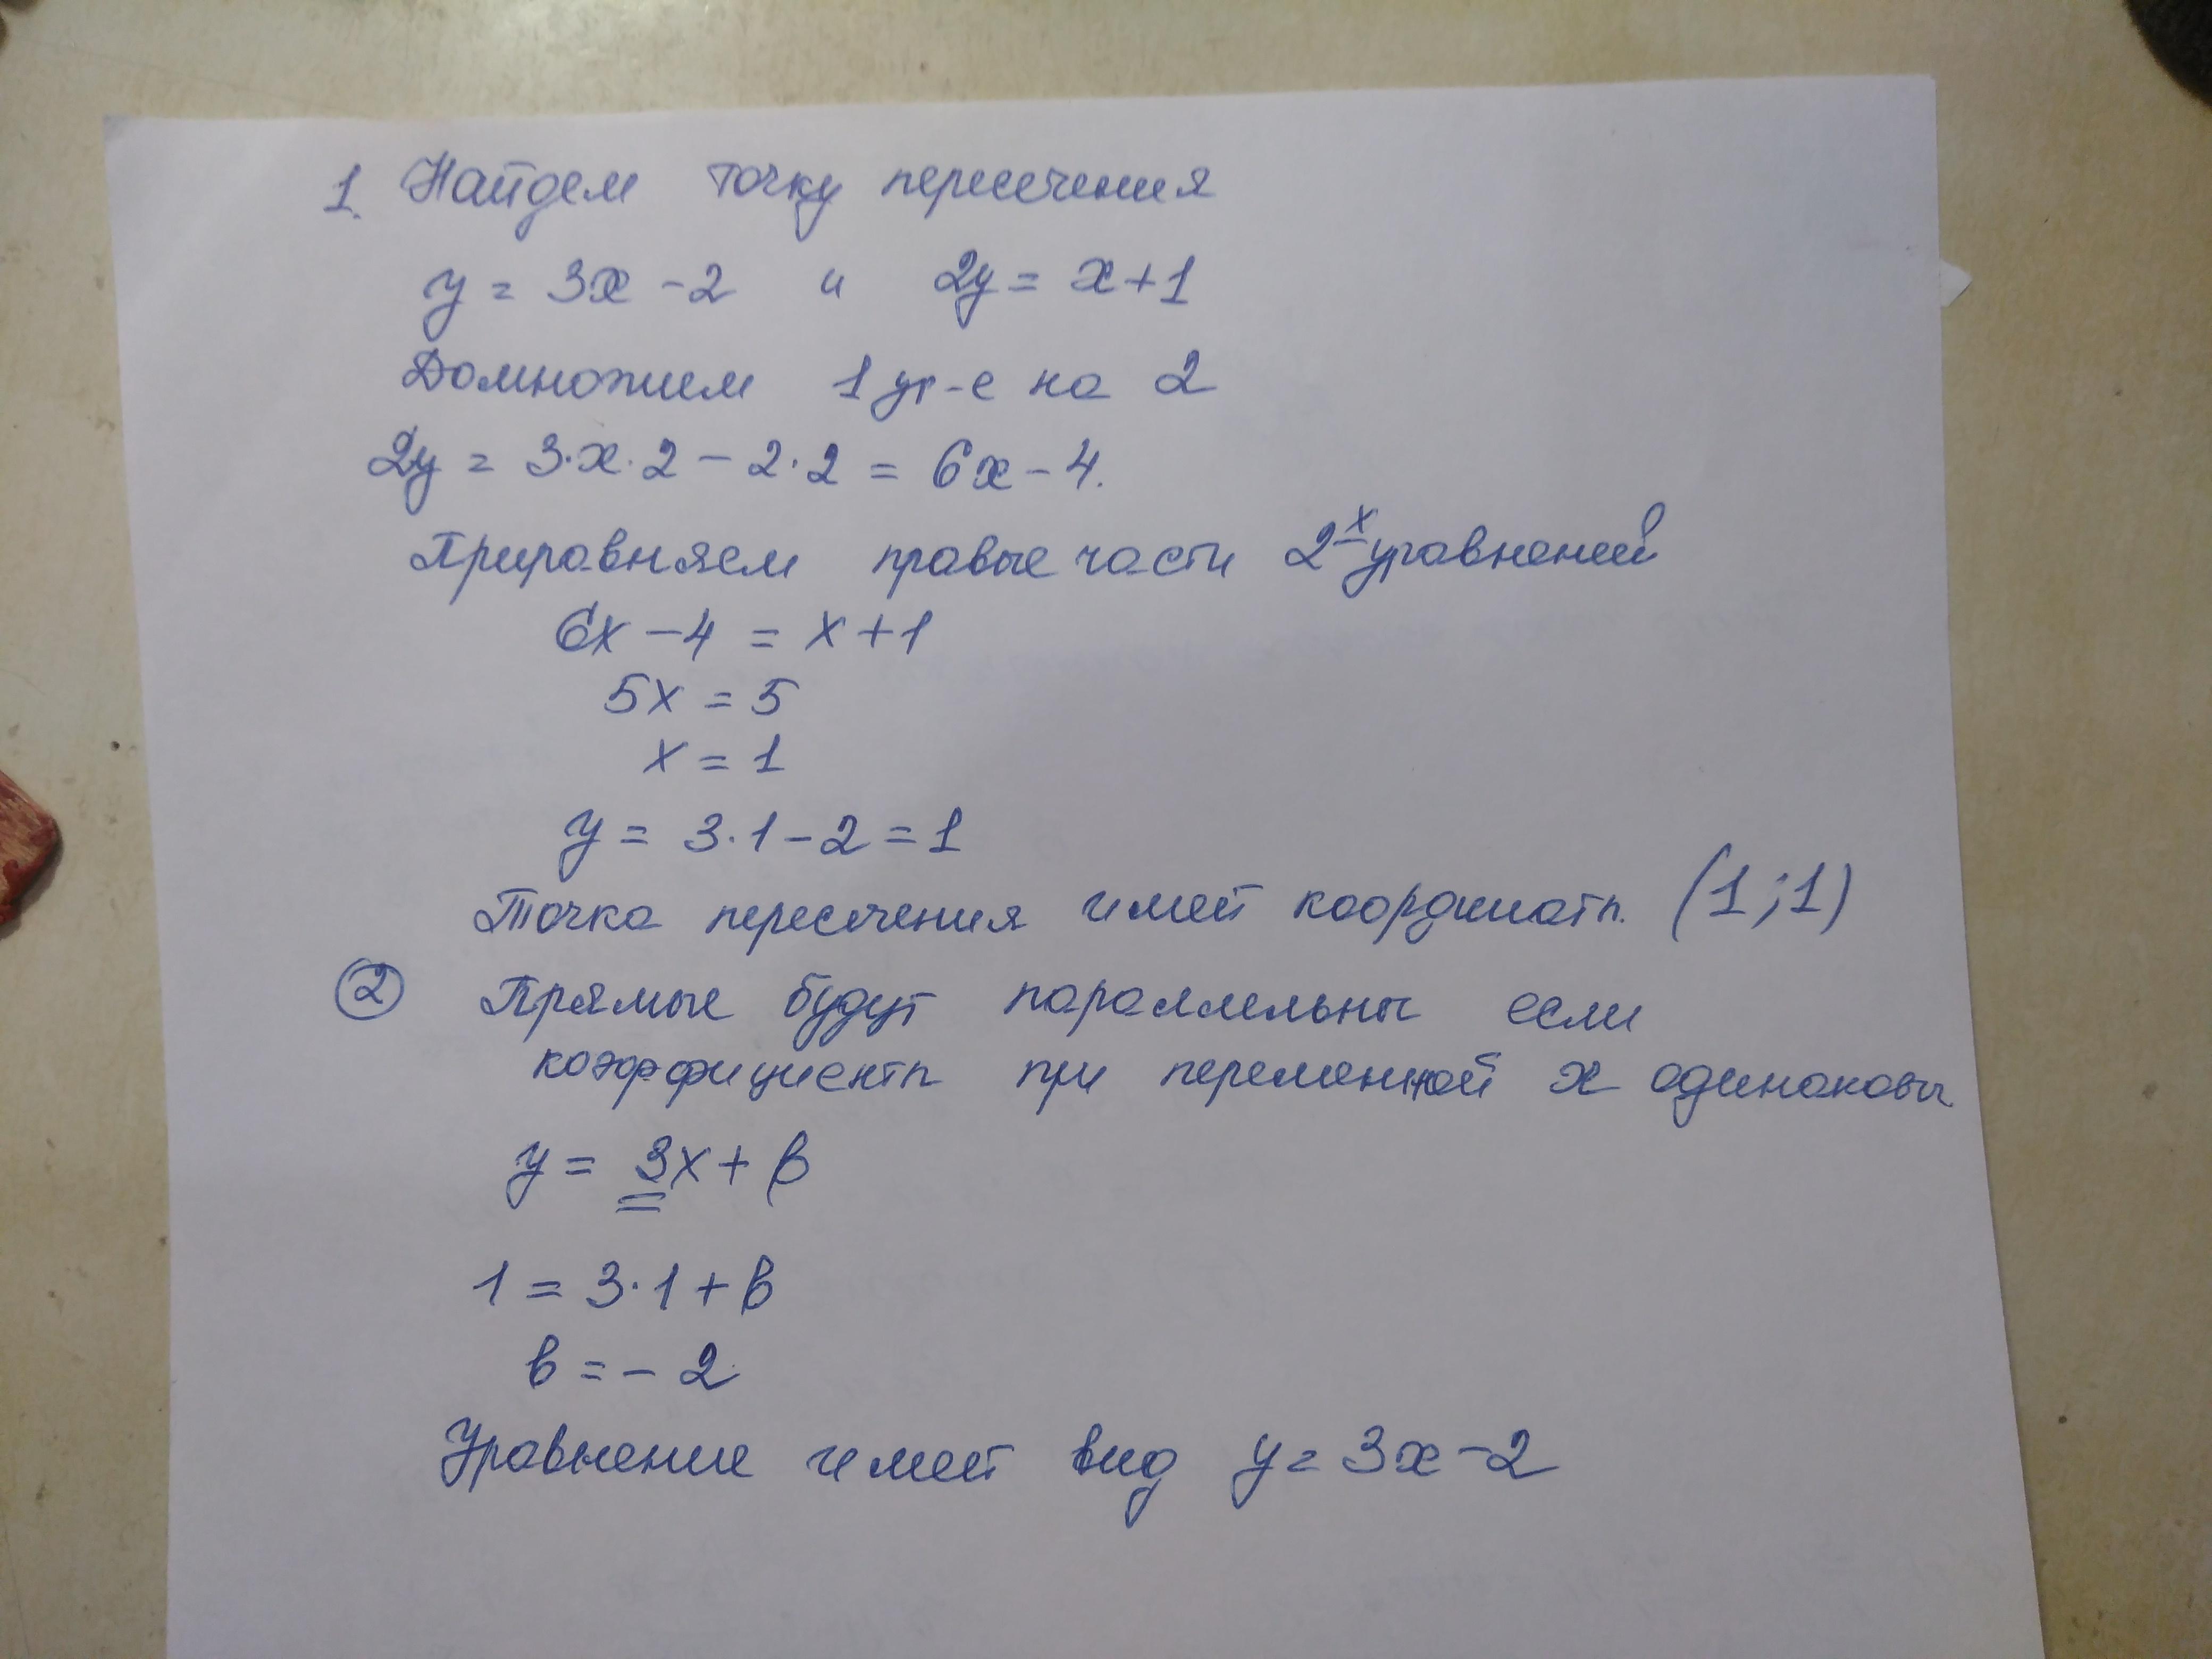 1. Найдем точку пересечения
y = 3x - 2 и 2y = x + 1
Домножим 1 ур-е на 2
2y = 3·x·2 - 2·2 = 6x - 4.
Приравняем правые части 2х уравнений
6x - 4 = x + 1
5x = 5
x = 1
y = 3·1 - 2 = 1
Точка пересечения имеет координаты (1;1)
2 Прямые будут параллельны если
коэффициенты при переменной x одинаковы
y = 3x + b
1 = 3·1 + b
b = - 2
Уравнение имеет вид y = 3x - 2